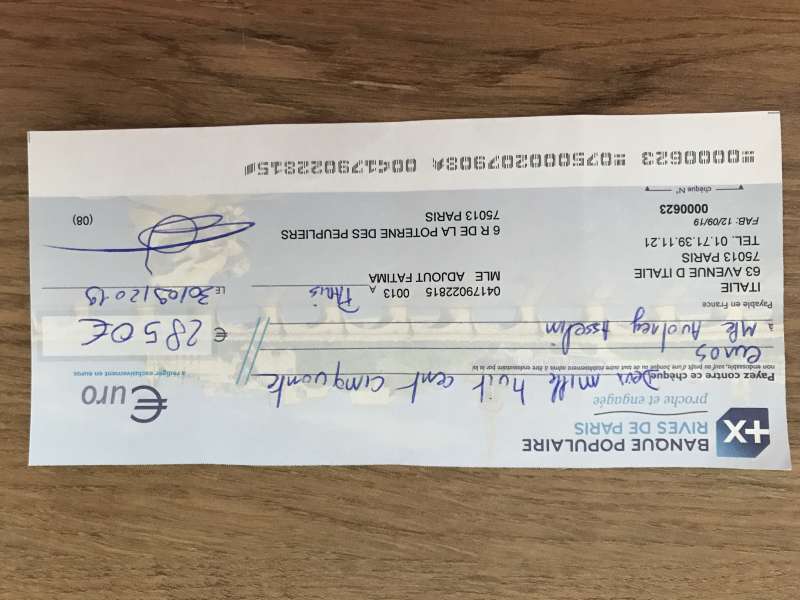 BANQUE POPULAIRE
RIVES DE PARIS
proche et engagée
€uro
Payez contre ce chèque Deux mille huit cent cinquante
non endossable, sauf au profit d'une banque ou de tout autre établissement admis à être endossataire par la loi
à rédiger exclusivement en euros
euros
à Mlle Audrey Asselin
€ 2850€
Payable en France
ITALIE
63 AVENUE D ITALIE
75013 PARIS
TEL. 01.71.39.11.21
FAB: 12/09/19
0000623
chèque N°
04179022815 0013
A Paris
LE 30/09/2019
MLE ADJOUT FATIMA
6 R DE LA POTERNE DES PEUPLIERS
75013 PARIS
(08)
0000623 075000207908 004179022815